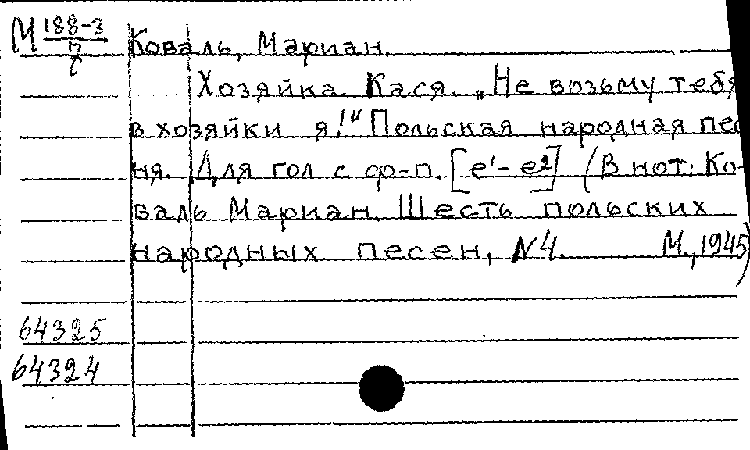 М 188-3
7
Коваль, Мариан.
Хозяйка Кася. „Не возьму тебя
в хозяйки я!" Польская народная пес
ня. Для гол с ф-п. [e¹-e²] (В нот: Ко-
валь Мариан. Шесть польских
народных песен, №4. М., 1945)
64325
64324